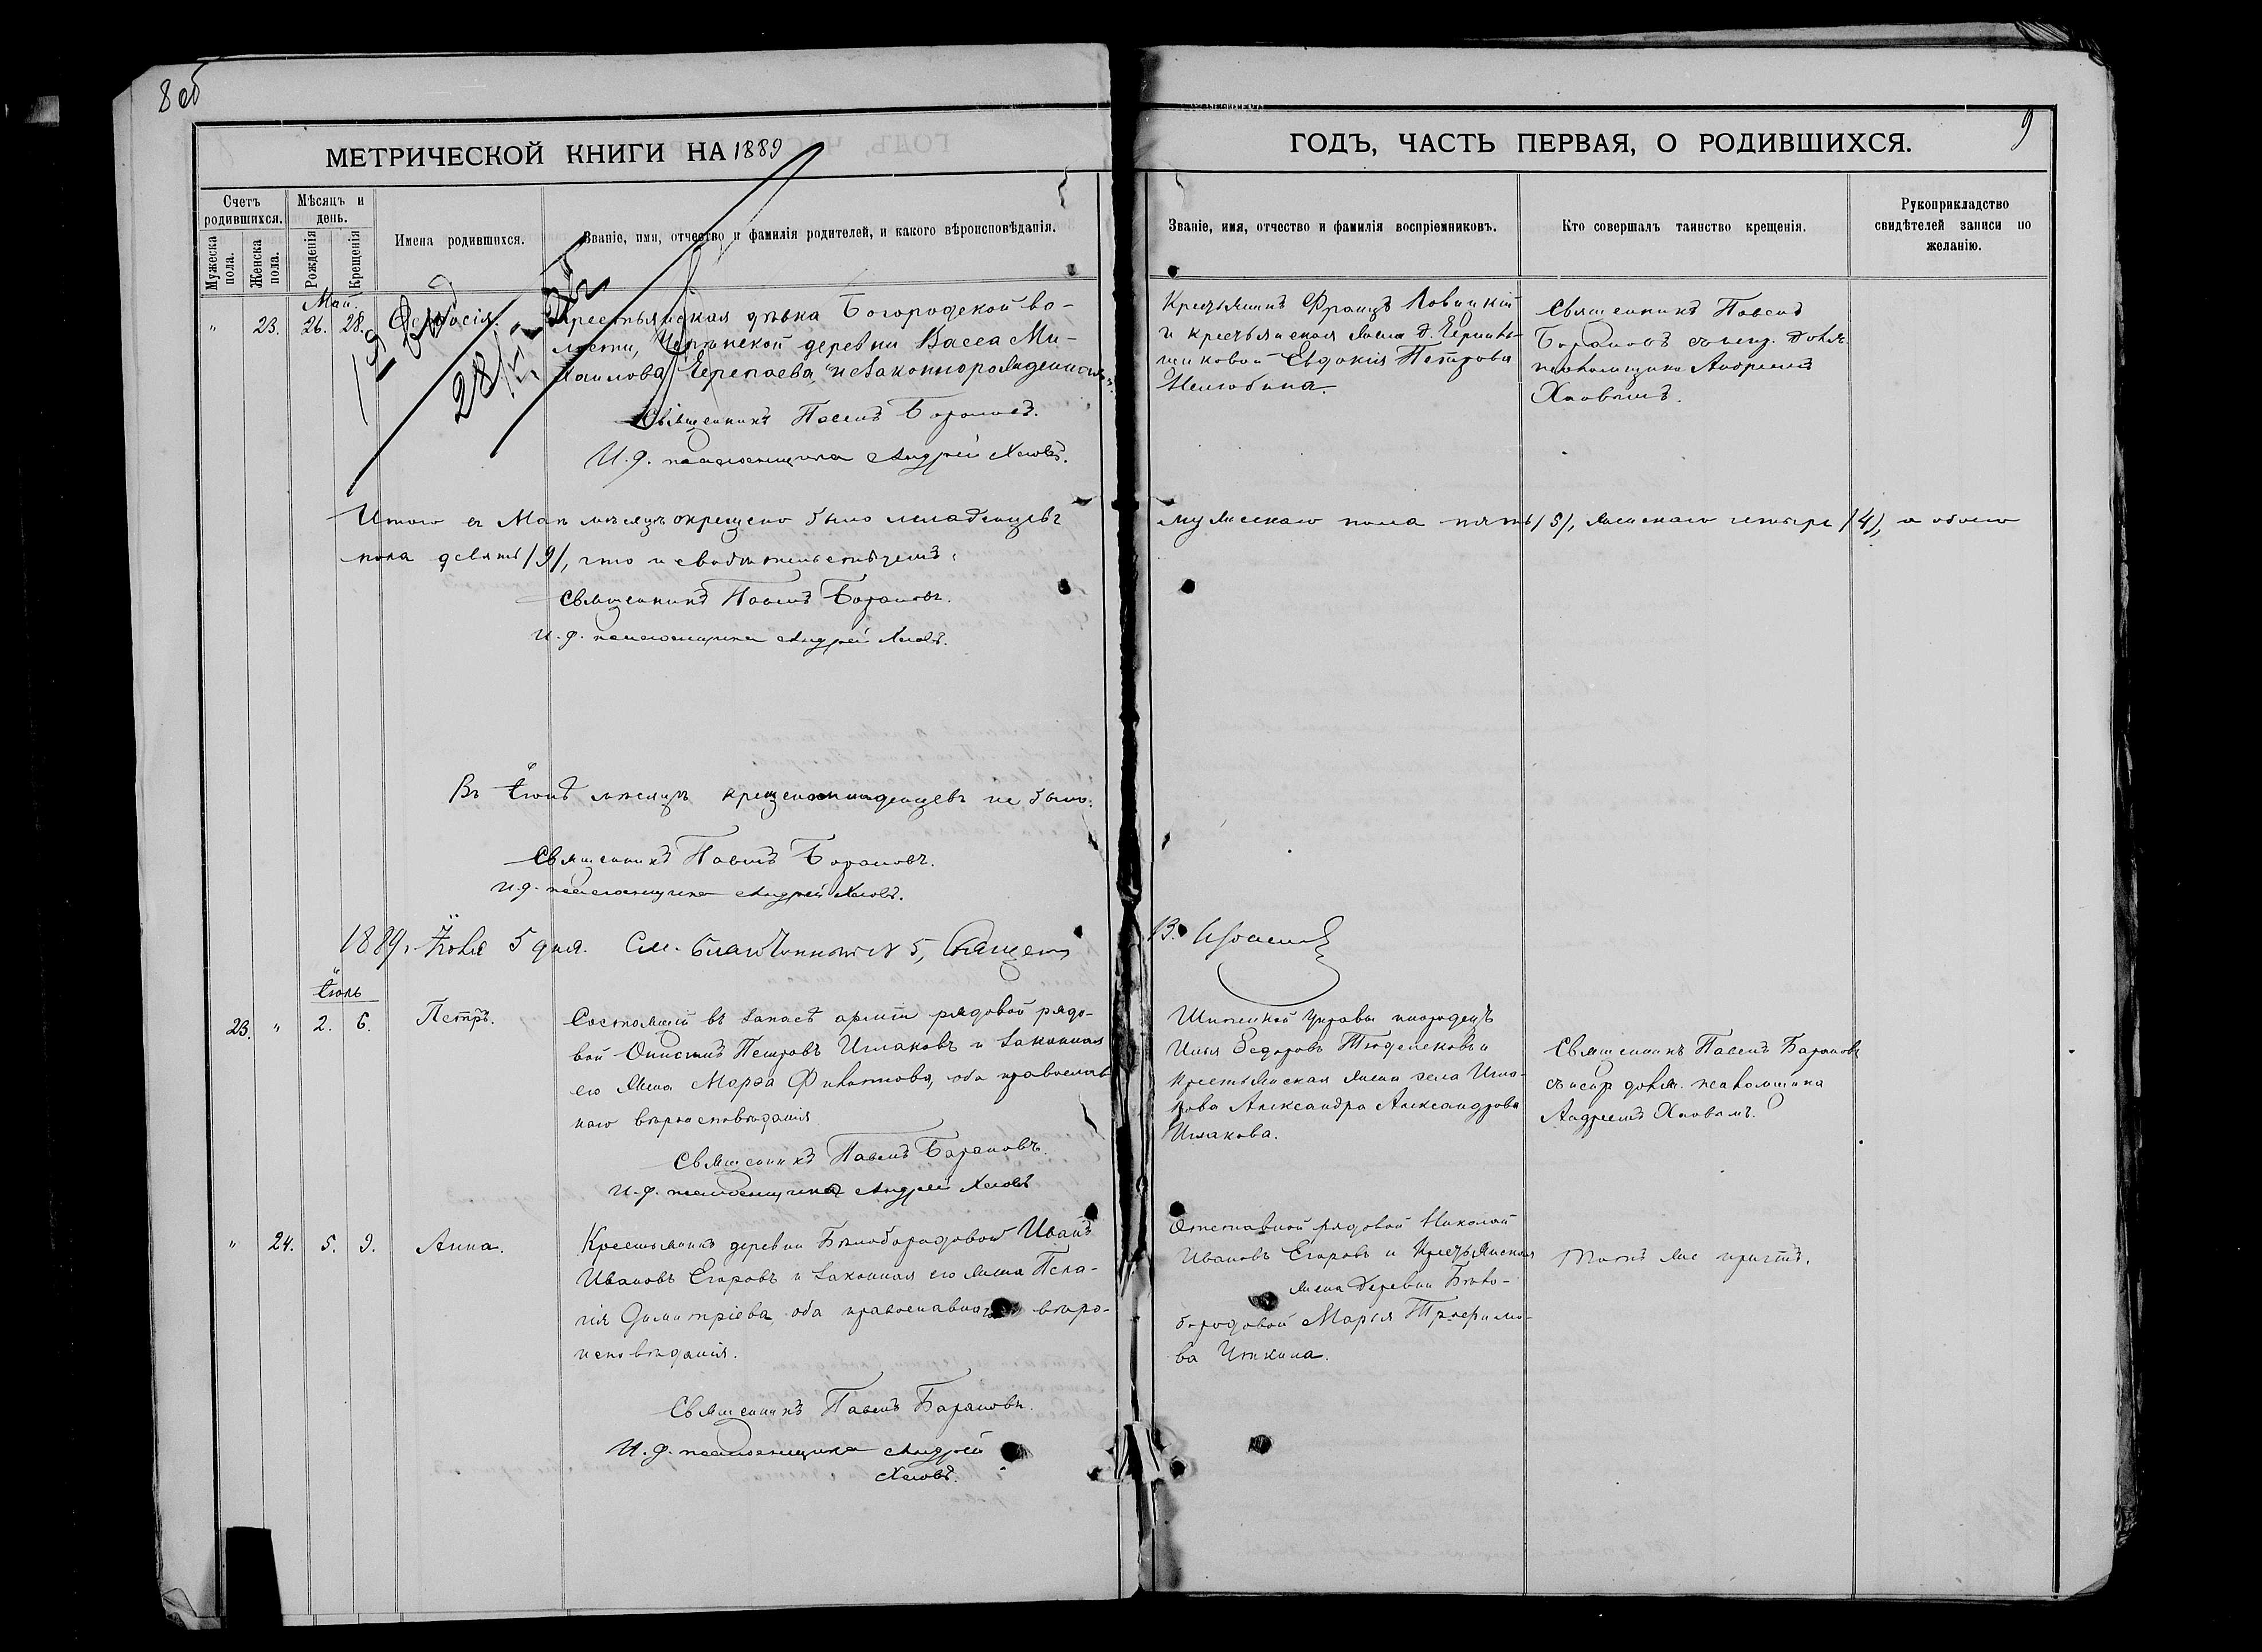 8 об
9
МЕТРИЧЕСКОЙ КНИГИ НА 1889
ГОДЪ, ЧАСТЬ ПЕРВАЯ, О РОДИВШИХСЯ.
Счетъ родившихся.
Мужеска пола.
Женска пола.
Мѣсяцъ и день.
Рожденія
Крещенія
Имена родившихся.
Званіе, имя, отчество и фамилія родителей, и какого вѣроисповѣданія.
Званіе, имя, отчество и фамилія воспріемниковъ.
Кто совершалъ таинство крещенія.
Рукоприкладство свидѣтелей записи по желанію.
Май.
" 23. 26. 28.
Крестьянская дѣвка Богородской во-
лости, деревни Васса Ми-
хаилова "незаконнорожденная".
Священникъ Павелъ Барановъ.
И. д. псаломщика Андрей Хаовъ.
Крестьянинъ Францъ
и крестьянская жена д.
Евдокія Петрова
Нелюбина.
Священникъ Павелъ
Барановъ съ испр. долж.
псаломщика Андреемъ
Хаовымъ.
Итого въ Маѣ мѣсяцѣ окрещено было младенцевъ
мужескаго пола пять /5/, женскаго четыре /4/, а обоего
пола девять /9/, что и свидѣтельствуемъ:
Священникъ Павелъ Барановъ.
И. д. псаломщика Андрей Хаовъ.
Въ Іюнѣ мѣсяцѣ младенцевъ не было.
Священникъ Павелъ Барановъ.
И. д. псаломщика Андрей Хаовъ.
1889. 5 дня. См. Благочинный № 5, Священ.
Іюль
23. " 2. 6.
Петръ.
Состоящій въ запасѣ арміи рядовой рядо-
вой Петровъ Ижлаковъ и законная
его жена Марѳа оба православ-
наго вѣроисповѣданія
Священникъ Павелъ Барановъ.
И. д. псаломщика Андрей Хаовъ
управы инородецъ
Илья Ѳедоровъ и
крестьянская жена села
Александра Александрова
Священникъ Павелъ Барановъ
съ испр. долж. псаломщика
Андреемъ Хаовымъ.
" 24. 5. 9.
Анна.
Крестьянинъ деревни Бѣлобородовой Иванъ
Ивановъ Егоровъ и законная его жена Пела-
гія Димитріева, оба православнаго вѣро-
исповѣданія.
Священникъ Павелъ Барановъ.
И. д. псаломщика Андрей
Хаовъ.
Отставной рядовой Николай
Ивановъ Егоровъ и крестьянская
жена деревни Бѣло-
бородовой Марья Трофимо-
ва
Тотъ же причтъ.